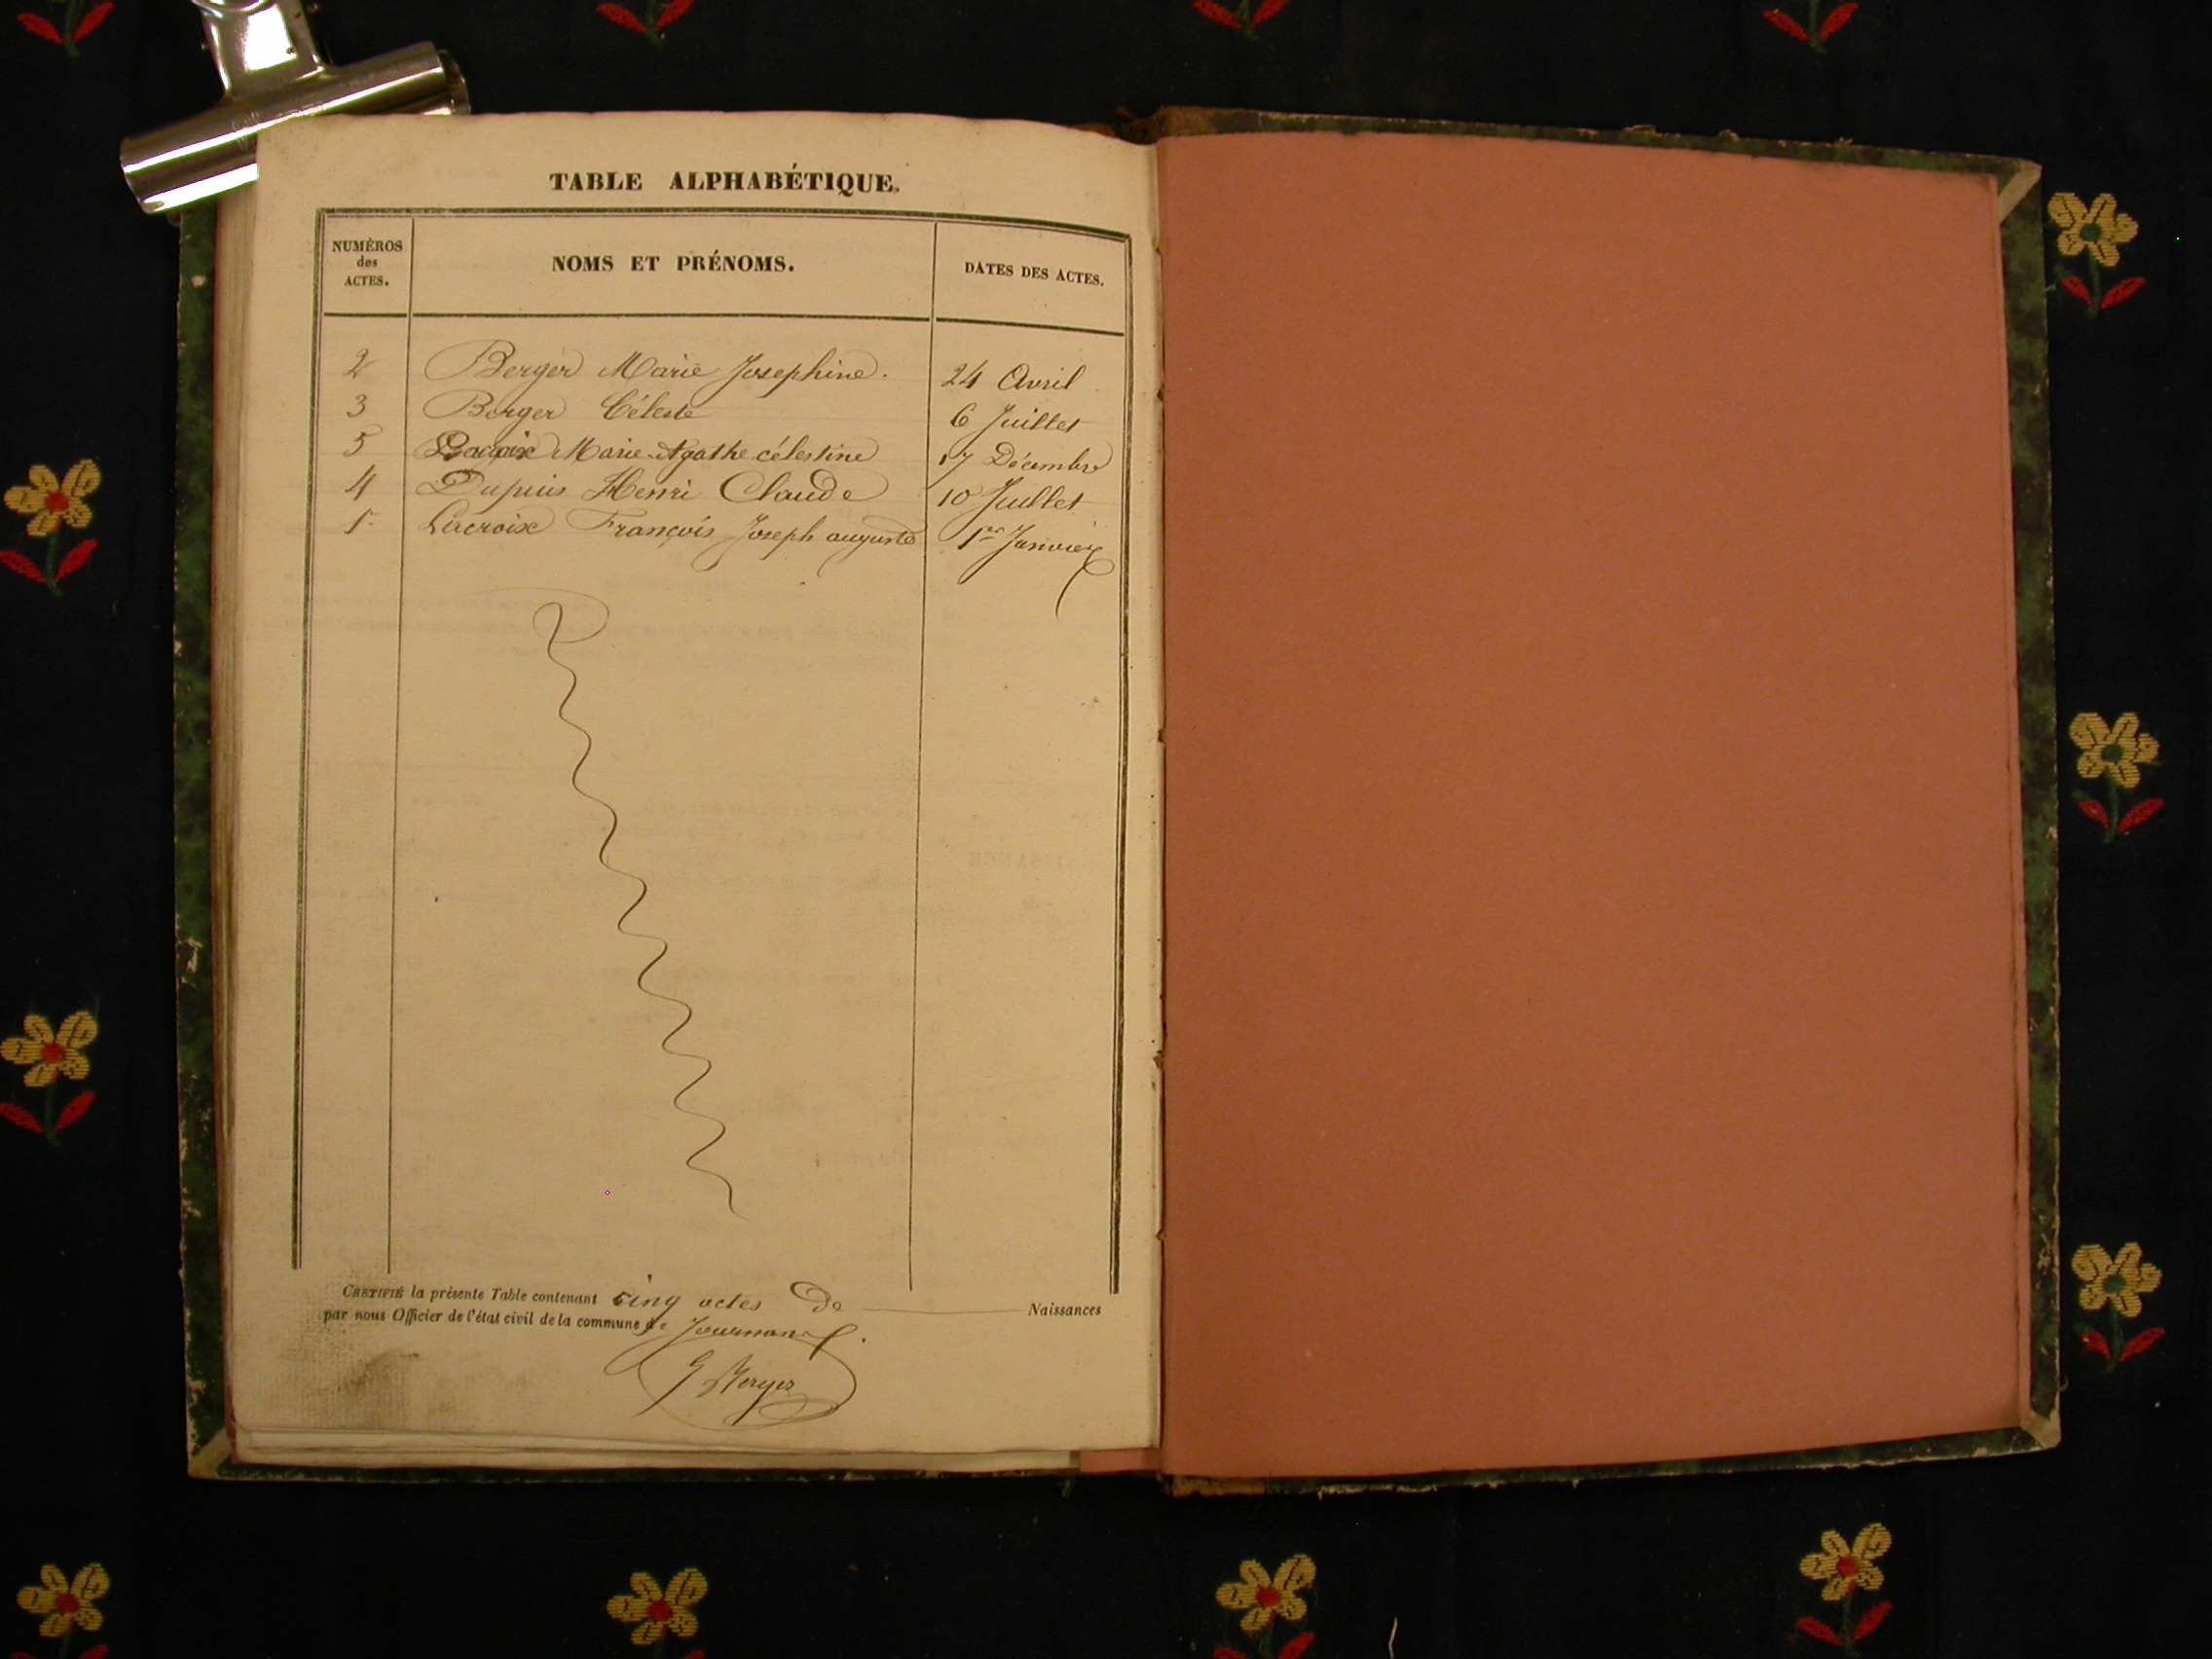 TABLE ALPHABÉTIQUE.
NUMÉROS des ACTES. NOMS ET PRÉNOMS. DATES DES ACTES.
2 Berger Marie Josephine. 24 Avril
3 Berger Céleste 6 Juillet
5 Marie Agathe célestine 17 Décembre
4 Dupuis Henri Claude 10 Juillet
1er Lacroix François Joseph auguste 1er Janvier
CERTIFIÉ la présente Table contenant cinq actes de Naissances
par nous Officier de l'état civil de la commune de Journans.
G Berger